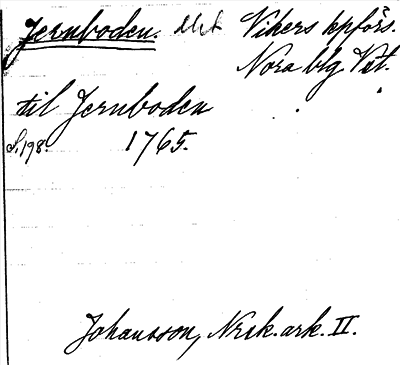 Jernboden. Vikers kpförs.
Nora blg Vst.
til Jernboden
S. 198. 1765.
Johansson, Nrik. ark. II.